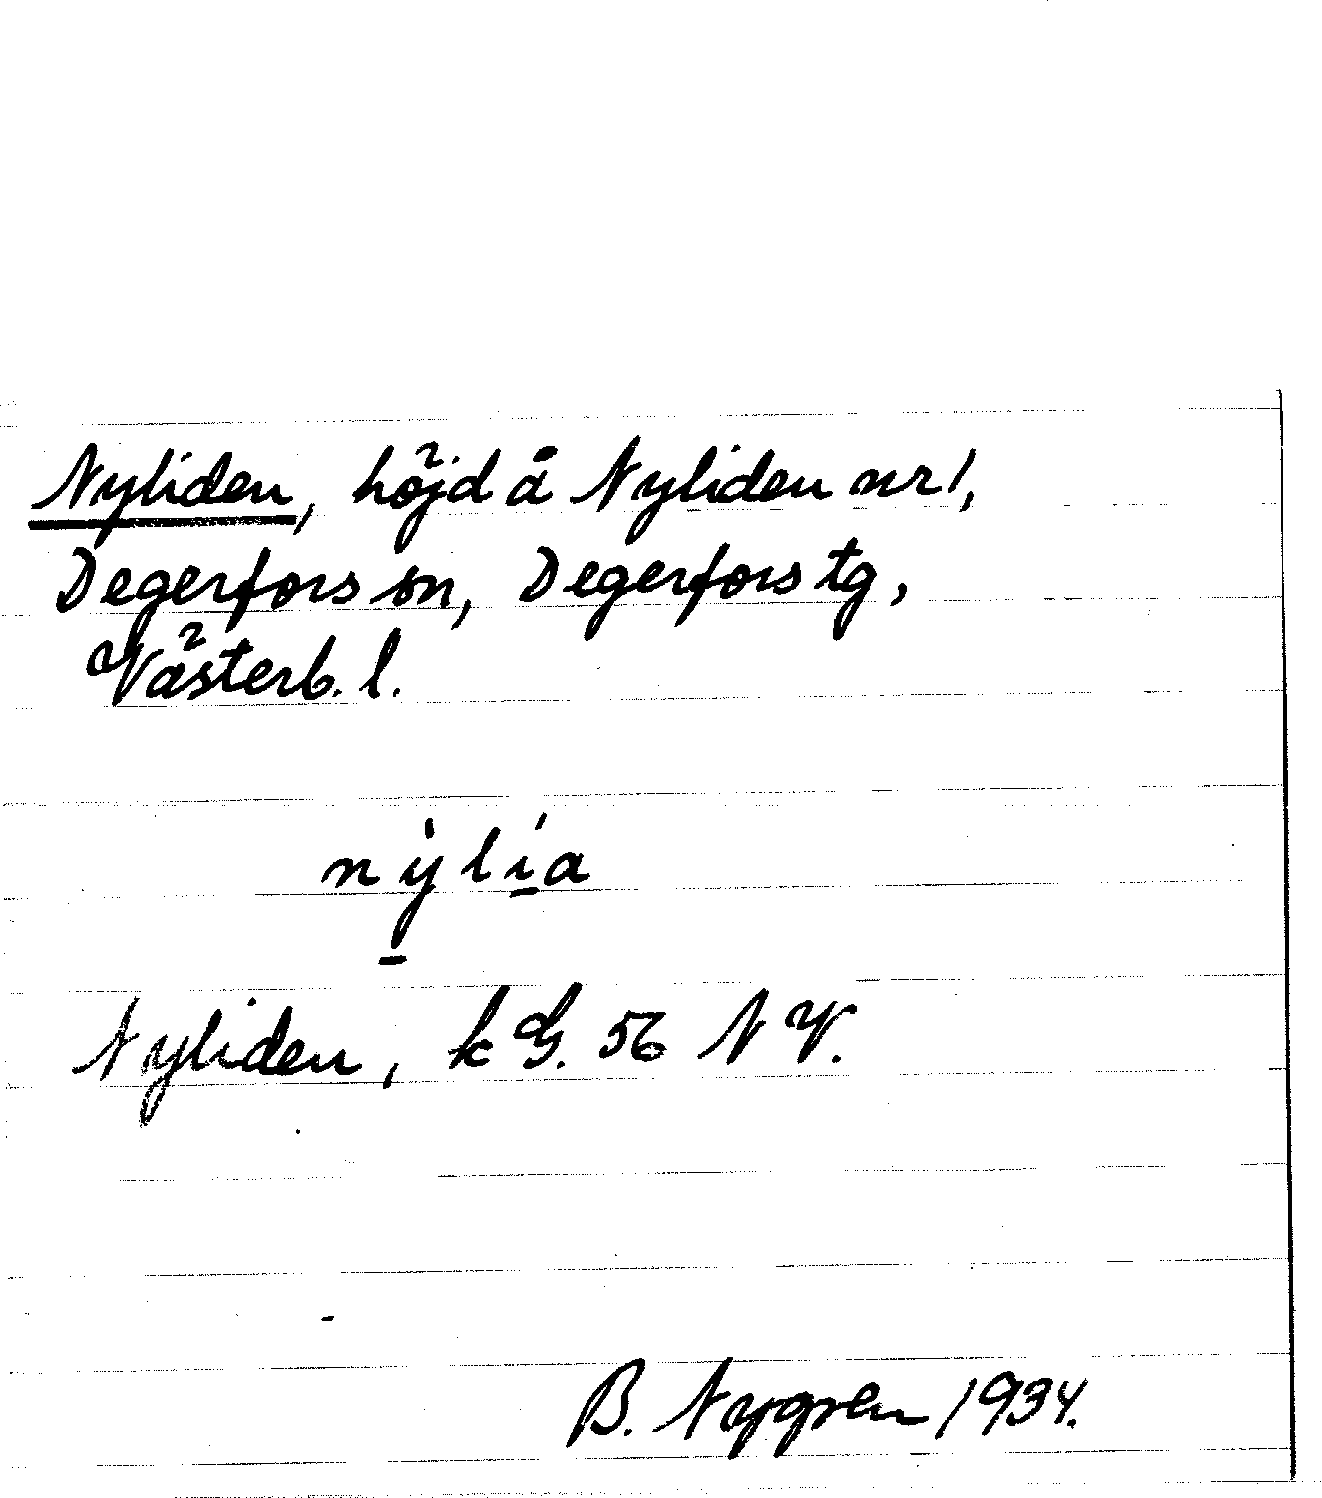 Nyliden, höjd å Nyliden nr 1,
Degerfors sn, Degerfors tg,
Västerb. l.
nỳ̠lí̠a
Nyliden, kG. 56 NV.
B. Nygren 1934.